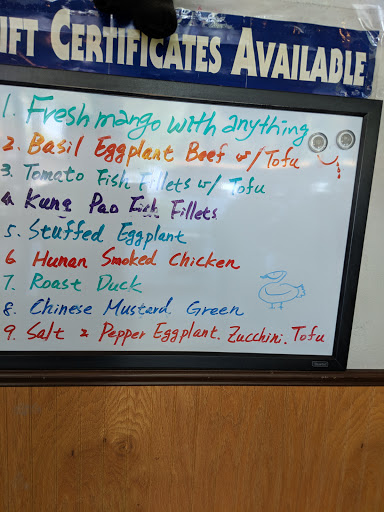 IFT CERTIFICATES AVAILABLE
1. Fresh mango with anything
2. Basil Eggplant Beef w/ Tofu
3. Tomato Fish Fillets w/ Tofu
4. Kung Pao Fish Fillets
5. Stuffed Eggplant
6 Hunan Smoked Chicken
7. Roast Duck
8. Chinese Mustard. Green
9. Salt & Pepper Eggplant. Zucchini. Tofu